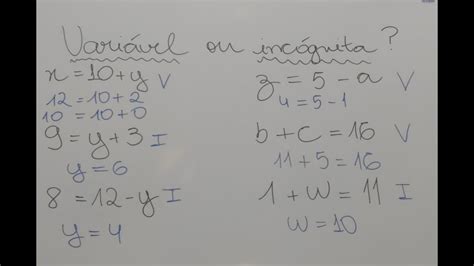 Variável ou incógnita?
x = 10 + y V
12 = 10 + 2
10 = 10 + 0
9 = y + 3 I
y = 6
8 = 12 - y I
y = 4
z = 5 - a V
4 = 5 - 1
b + c = 16 V
11 + 5 = 16
1 + w = 11 I
w = 10